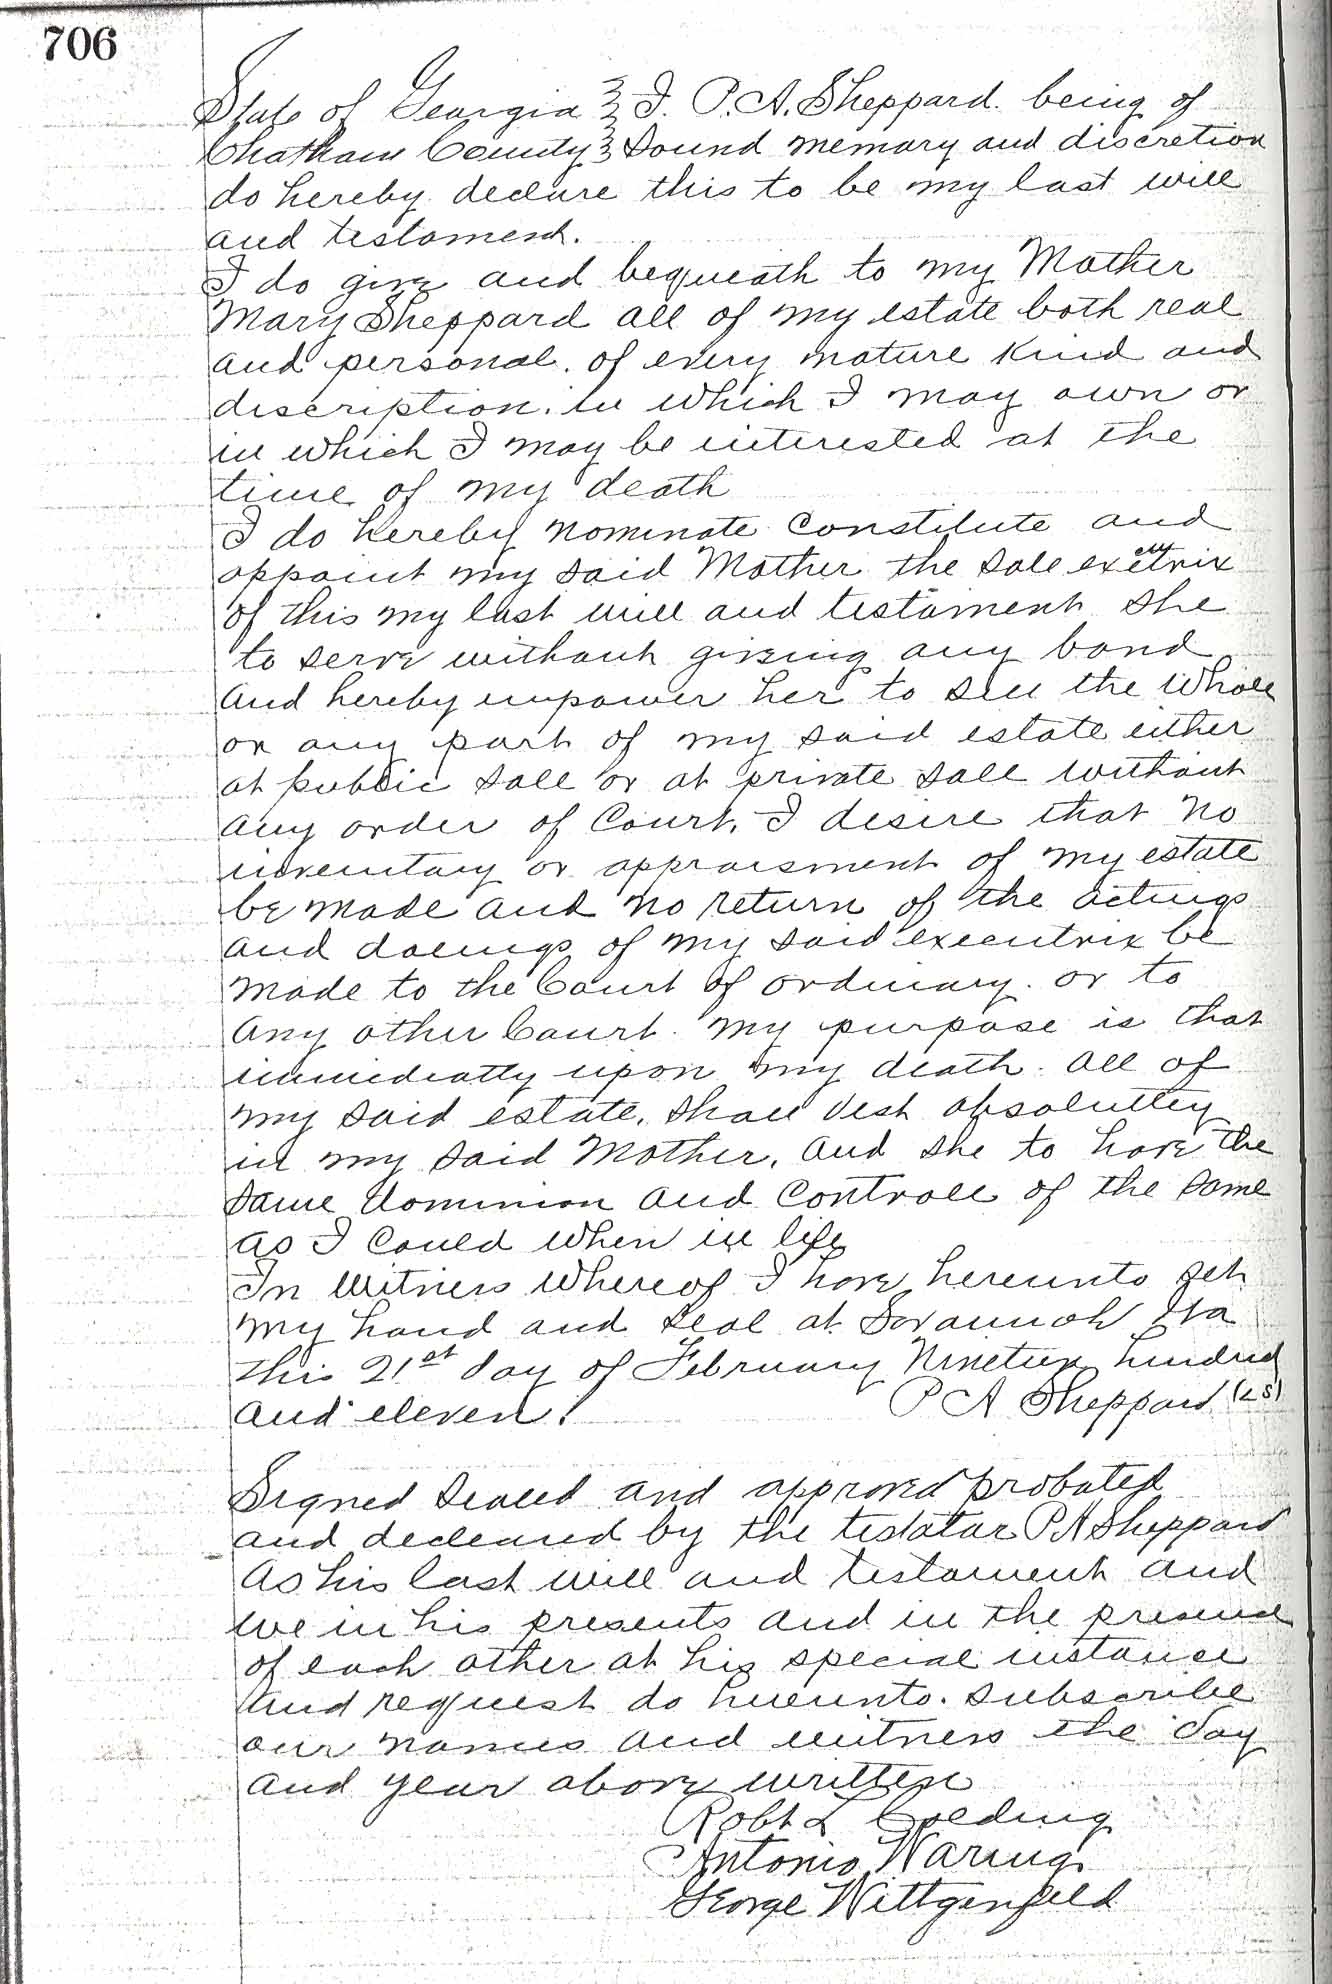 706
State of Georgia } I. P. A. Sheppard. being of
Chatham County } sound memory and discretion
do hereby declare this to be my last will
and testament.
I do give and bequeath to my Mother
Mary Sheppard all of my estate both real
and personal. of every nature kind and
discription. in which I may own or
in which I may be interested at the
time of my death
I do hereby nominate constitute and
appoint my said Mother the sole executrix
of this my last will and testament she
to serve without giving any bond
and hereby empower her to sell the whole
or any part of my said estate either
at public sale or at private sale without
any order of Court. I desire that no
inventory or appraisment of my estate
be made and no return of the actings
and doings of my said executrix be
made to the Court of ordinary. or to
any other Court. my purpose is that
immediatly upon my death. all of
my said estate. shall vest absoluttey
in my said Mother. and she to have the
same dominion and controll of the same
as I could when in life
In witness whereof I have hereunto set
my hand and seal at Savannah Ga
this 21st day of February Nineteen hundred
and eleven.
P A Sheppard (LS)
Signed sealed and approved probated
and decleared by the testator P A Sheppard
as his last will and testament and
we in his presents and in the presence
of each other at his special instance
and request do hereunto. subscribe
our names and witness the day
and year above written
Robt L Colding
Antonio Waring
George Wittgenfeld